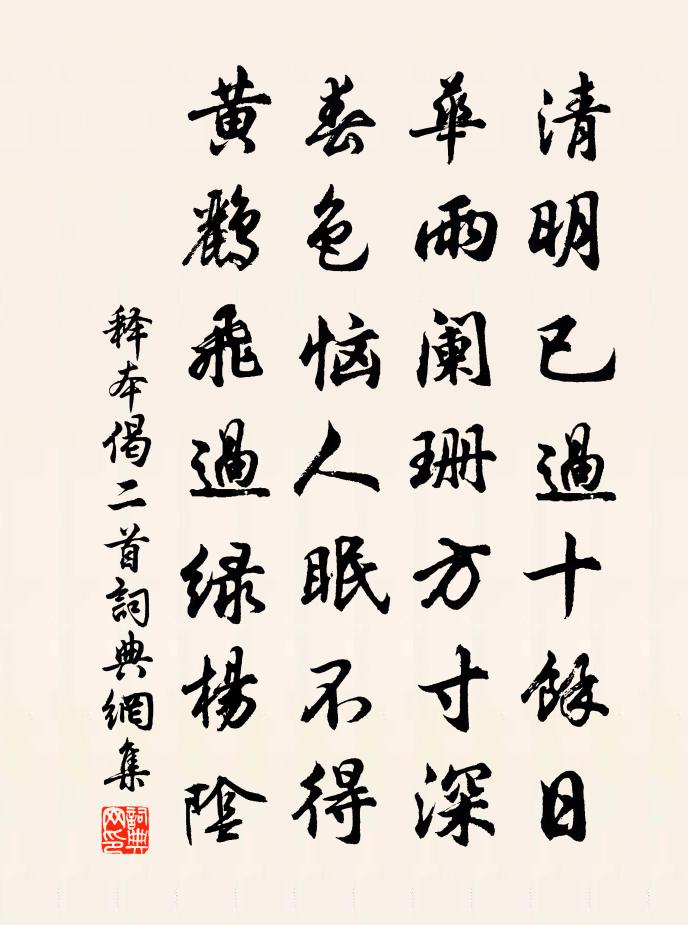 清明已過十餘日
華雨闌珊方寸深
春色恼人眠不得
黄鸝飛過緑楊陰
釋本偈二首詞典網集
詞典网印